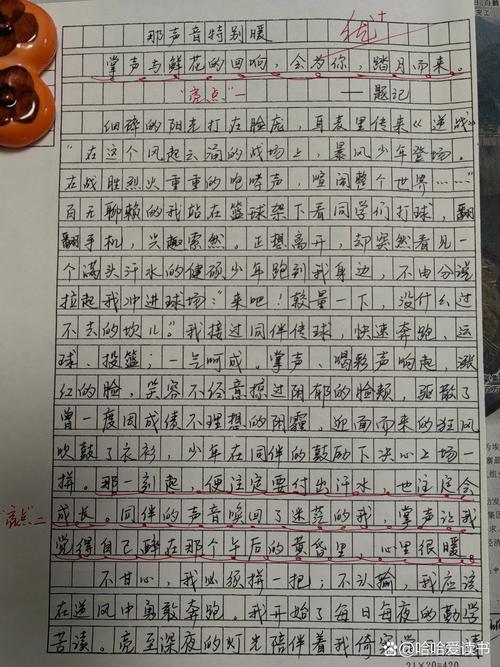 那声音特别暖
优+
掌声与鲜花的回响，会为你，踏月而来。
"亮点"一
——题记
细碎的阳光打在脸庞，耳麦里传来《逆战》
"在这个风起云涌的战场上，暴风少年登场。
在战胜烈火重重的咆哮声，喧闹整个世界……"
百无聊赖的我站在篮球架下看同学们打球，翻
翻手机，兴趣索然。正想离开，却突然看见一
个满头汗水的健硕少年跑到我身边，不由分说
拉起我冲进球场："来吧！较量一下，没什么过
不去的坎儿。"我接过同伴传球，快速奔跑、运
球、投篮；一气呵成。掌声、喝彩声响起，涨
红的脸，笑容不经音掠过阴郁的脸颊，驱散了
曾一度因成绩不理想的阴霾。迎面而来的狂风
吹鼓了衣衫，少年在同伴的鼓励下决心上场一
拼。那一刻起，便注定要付出汗水，也注定会
"亮点"二
成长。同伴的声音唤回了迷茫的我，掌声让我
觉得自己醉在那个午后的黄昏里，心里很暖。
不甘心，我必须拼一把；不认输，我应该
在逆风中勇敢奔跑。我开始了每日每夜的勤学
苦读。亮至深夜的灯光陪伴着我
21×20=420
头条 @哈哈爱读书